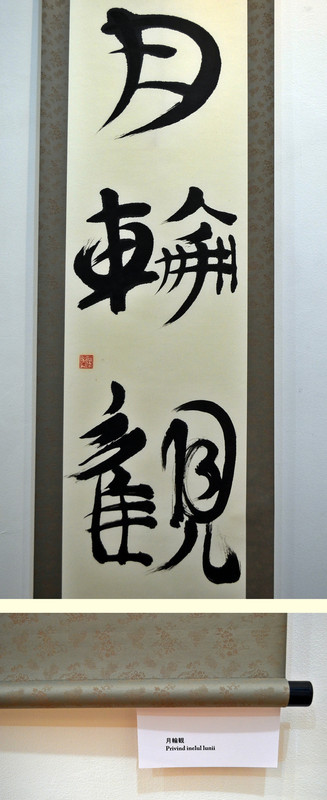 月
輪
観
月輪観
Privind inelul lunii